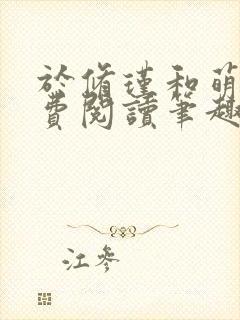 於脩瑾和萌
費閱讀筆趣
江參